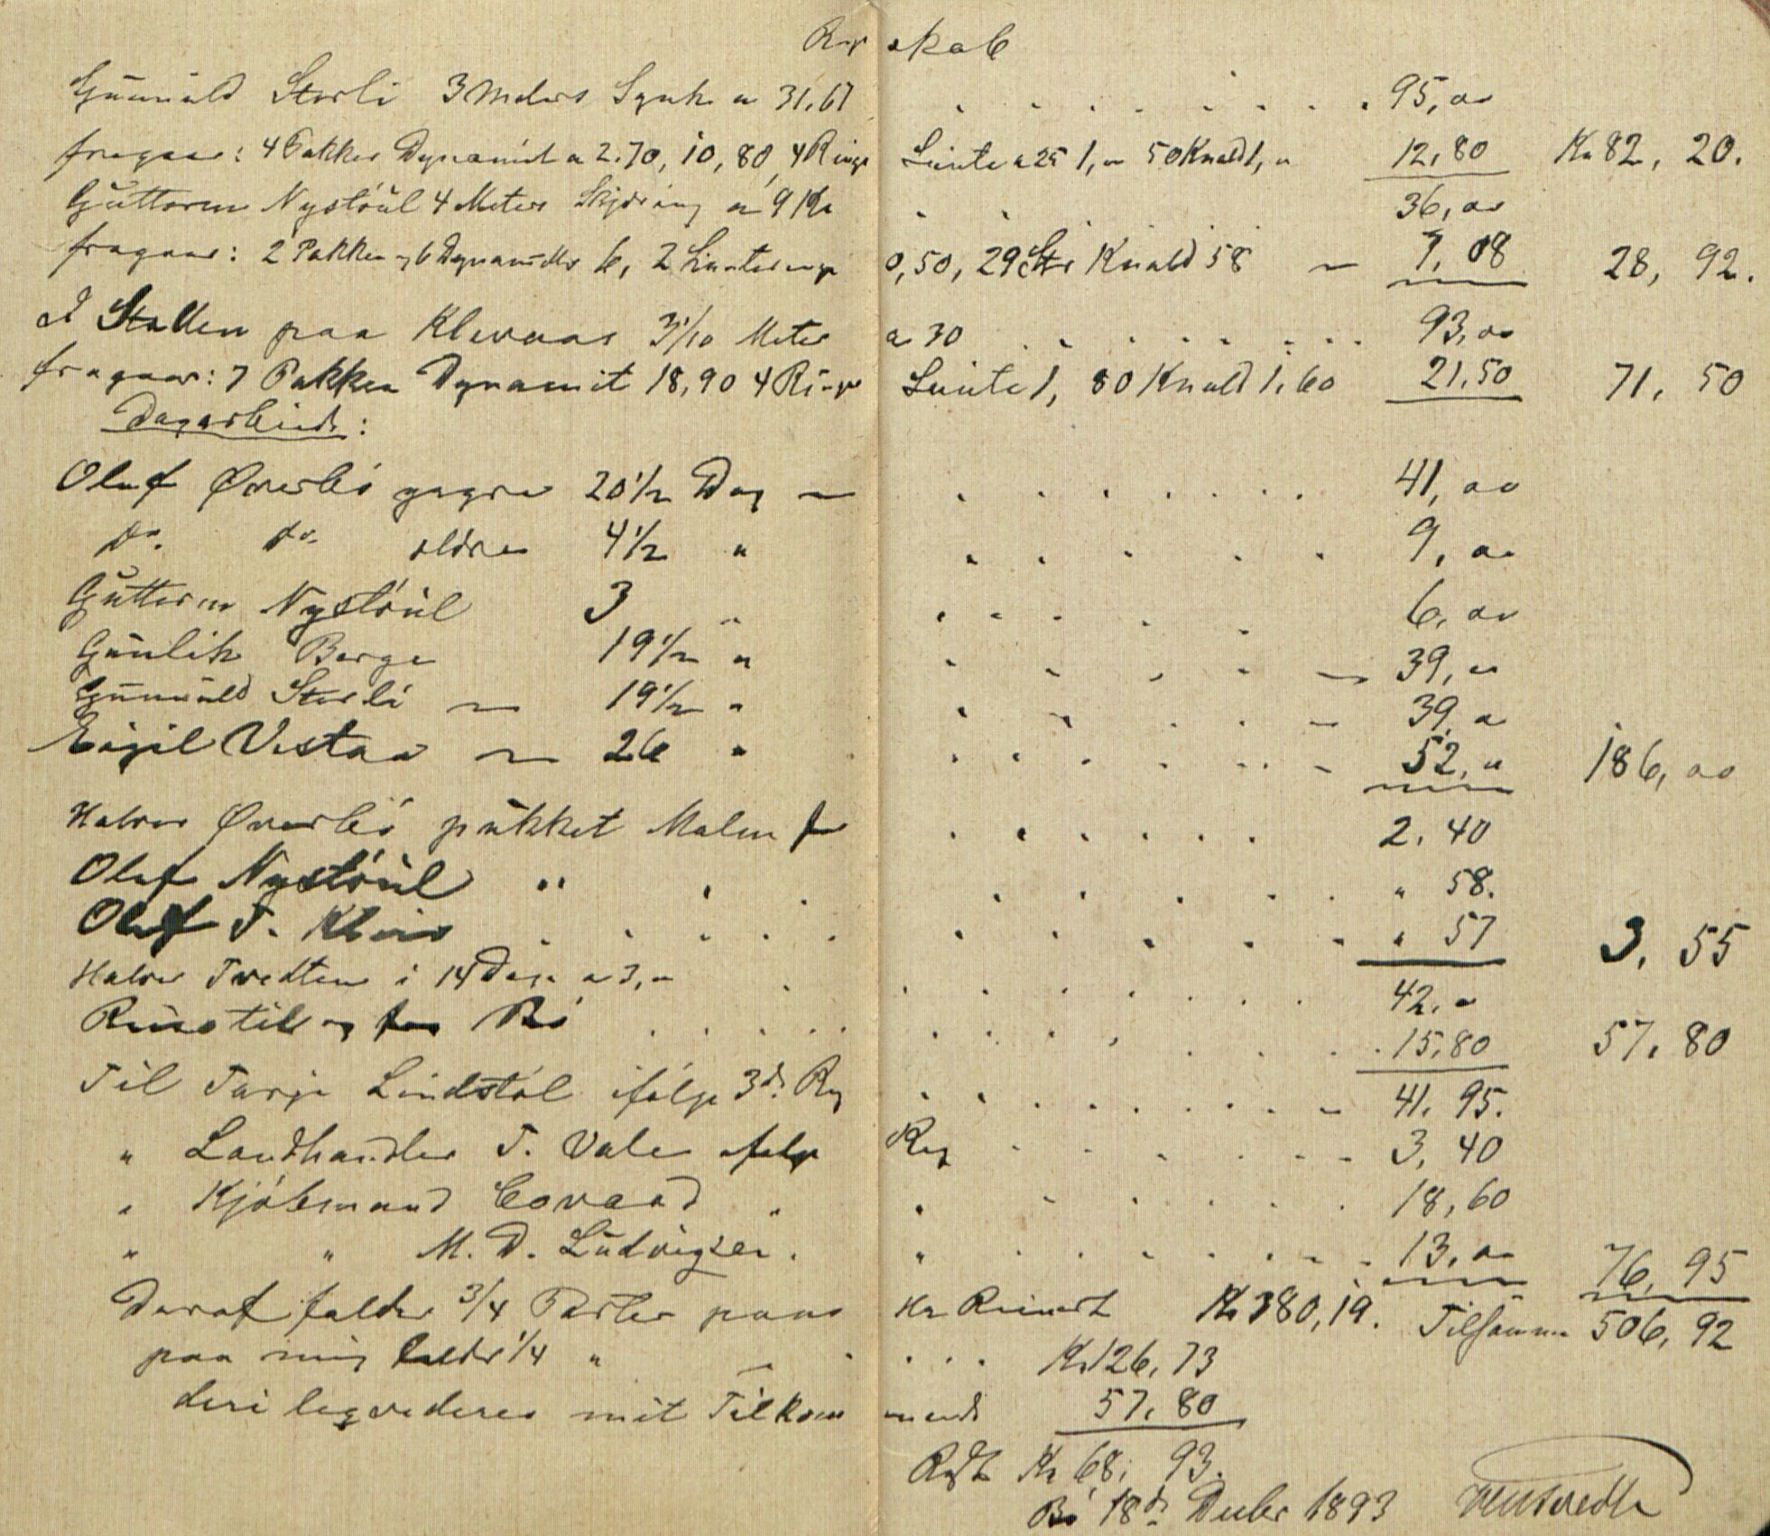 Regnskab
Gunnuld Storli 3 Meters Synk a 31,67 95,00
fragaar: 4 Pakker Dynamit a 2.70, 10,80, 4 Ringe Lunte a 25 1,00 50 Knald 1,00 12,80 Kr 82,20.
Guttorm Nystöül 4 Meters Skjæring a 9 Kr 36,00
fragaar: 2 Pakker og 6 Dynamiter 6, 2 Lunteringe 0,50, 29 Str Knald 58 7,08 28,92.
I Stollen paa Klevaas 3 1/10 Meter a 30 93,00
fragaar: 7 Pakker Dynamit 18,90 4 Ringe Lunte 1, 80 Knald 1,60 21,50 71,50
Dagarbeide:
Oluf Øverbö yngre 20 1/2 Dag 41,00
Do. Do. eldre 4 1/2 " 9,00
Guttorm Nystöül 3 " 6,00
Gunlik Berge 19 1/2 " 39,00
Gunnuld Storli 19 1/2 " 39,00
Eigil Vistaa 26 " 52,00 186,00
Halvor Øverbö pukket Malm for 2,40
Oluf Nystöül " " 58.
Oluf T. Kleiv " 57 3,55
Halvor Tvedten i 14 Dage a 3,00 42,00
Reise til og fra Bö 15,80 57,80
Til Tarje Lindstöl ifölge 3de Reg 41,95.
" Landhandler T. Vale ifölge Reg 3,40
" Kjöbmand Coward " " 18,60
" " M. D. Ludvigsen. " 13,00 76,95
Deraf falder 3/4 Parter paa Hr Reinert Kr 380,19. Tilsammen 506,92
paa mig falder 1/4 " Kr 126,73
deri leqvideres mit Tilkommende 57,80
Rest Kr 68,93.
Bö 18de Decbr 1893 Tvedten